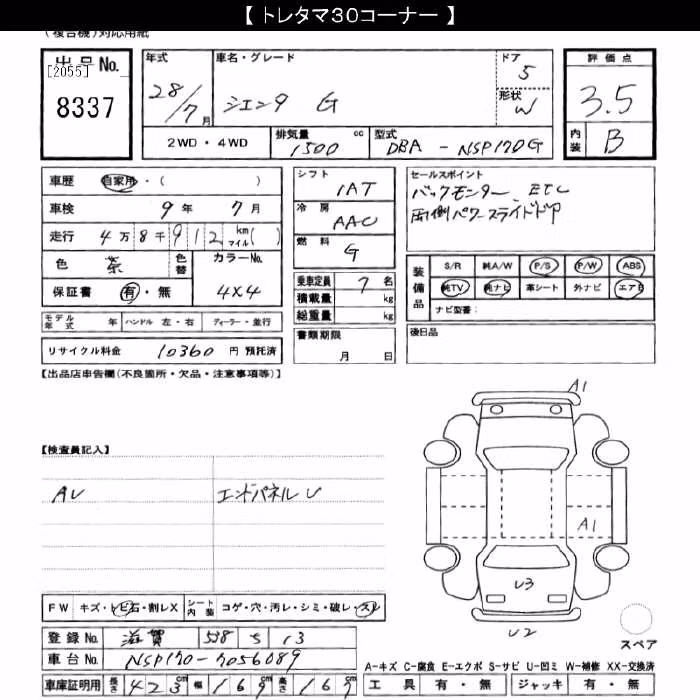 【 トレタマ30コーナー 】
(複合機)対応用紙
出品No.
[2055]
8337
年式
28/7月
車名・グレード
シエンタ G
ドア
5
形状
W
評価点
3.5
内装
B
2WD・4WD
排気量 cc
1500
型式
DBA - NSP170G
車歴 自家用・( )
車検 9年 7月
走行 4万8千912 km マイル( )
色 茶 色替
カラーNo.
4X4
保証書 有・無
モデル年式 年 ハンドル 左・右 ディーラー・並行
リサイクル料金 10360 円 預託済
シフト
IAT
冷房
AAC
燃料
G
乗車定員 7名
積載量 kg
総重量 kg
書類期限
月 日
セールスポイント
バックモンター、ETC
両側パワースライドドア
装備品
S/R 純A/W P/S P/W ABS
純TV 純ナビ 革シート 外ナビ エアB
ナビ型番:
後日品
【出品店申告欄(不良箇所・欠品・注意事項等)】
【検査員記入】
AU
エンドパネルU
A1
A1
U3
U2
スペア
FW キズ・トビ石・割レX
シート内装 コゲ・穴・汚レ・シミ・破レ・スレ
登録No. 滋賀 538 さ 13
車台No. NSP170-7056089
車庫証明用 長さ 423cm 幅 169 高さ 167
A-キズ C-腐食 E-エクボ S-サビ U-凹ミ W-補修 XX-交換済
工具 有・無 ジャッキ 有・無